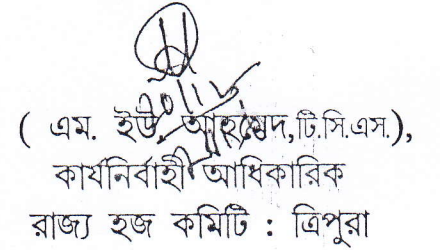 ( এম. ইউ আহমেদ,টি.সি.এস.),
কার্যনির্বাহী আধিকারিক
রাজ্য হজ কমিটি : ত্রিপুরা